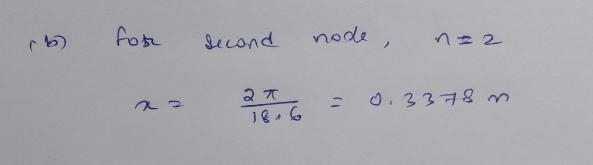 (b) for second node, n=2
x = 2π/18.6 = 0.3378 m